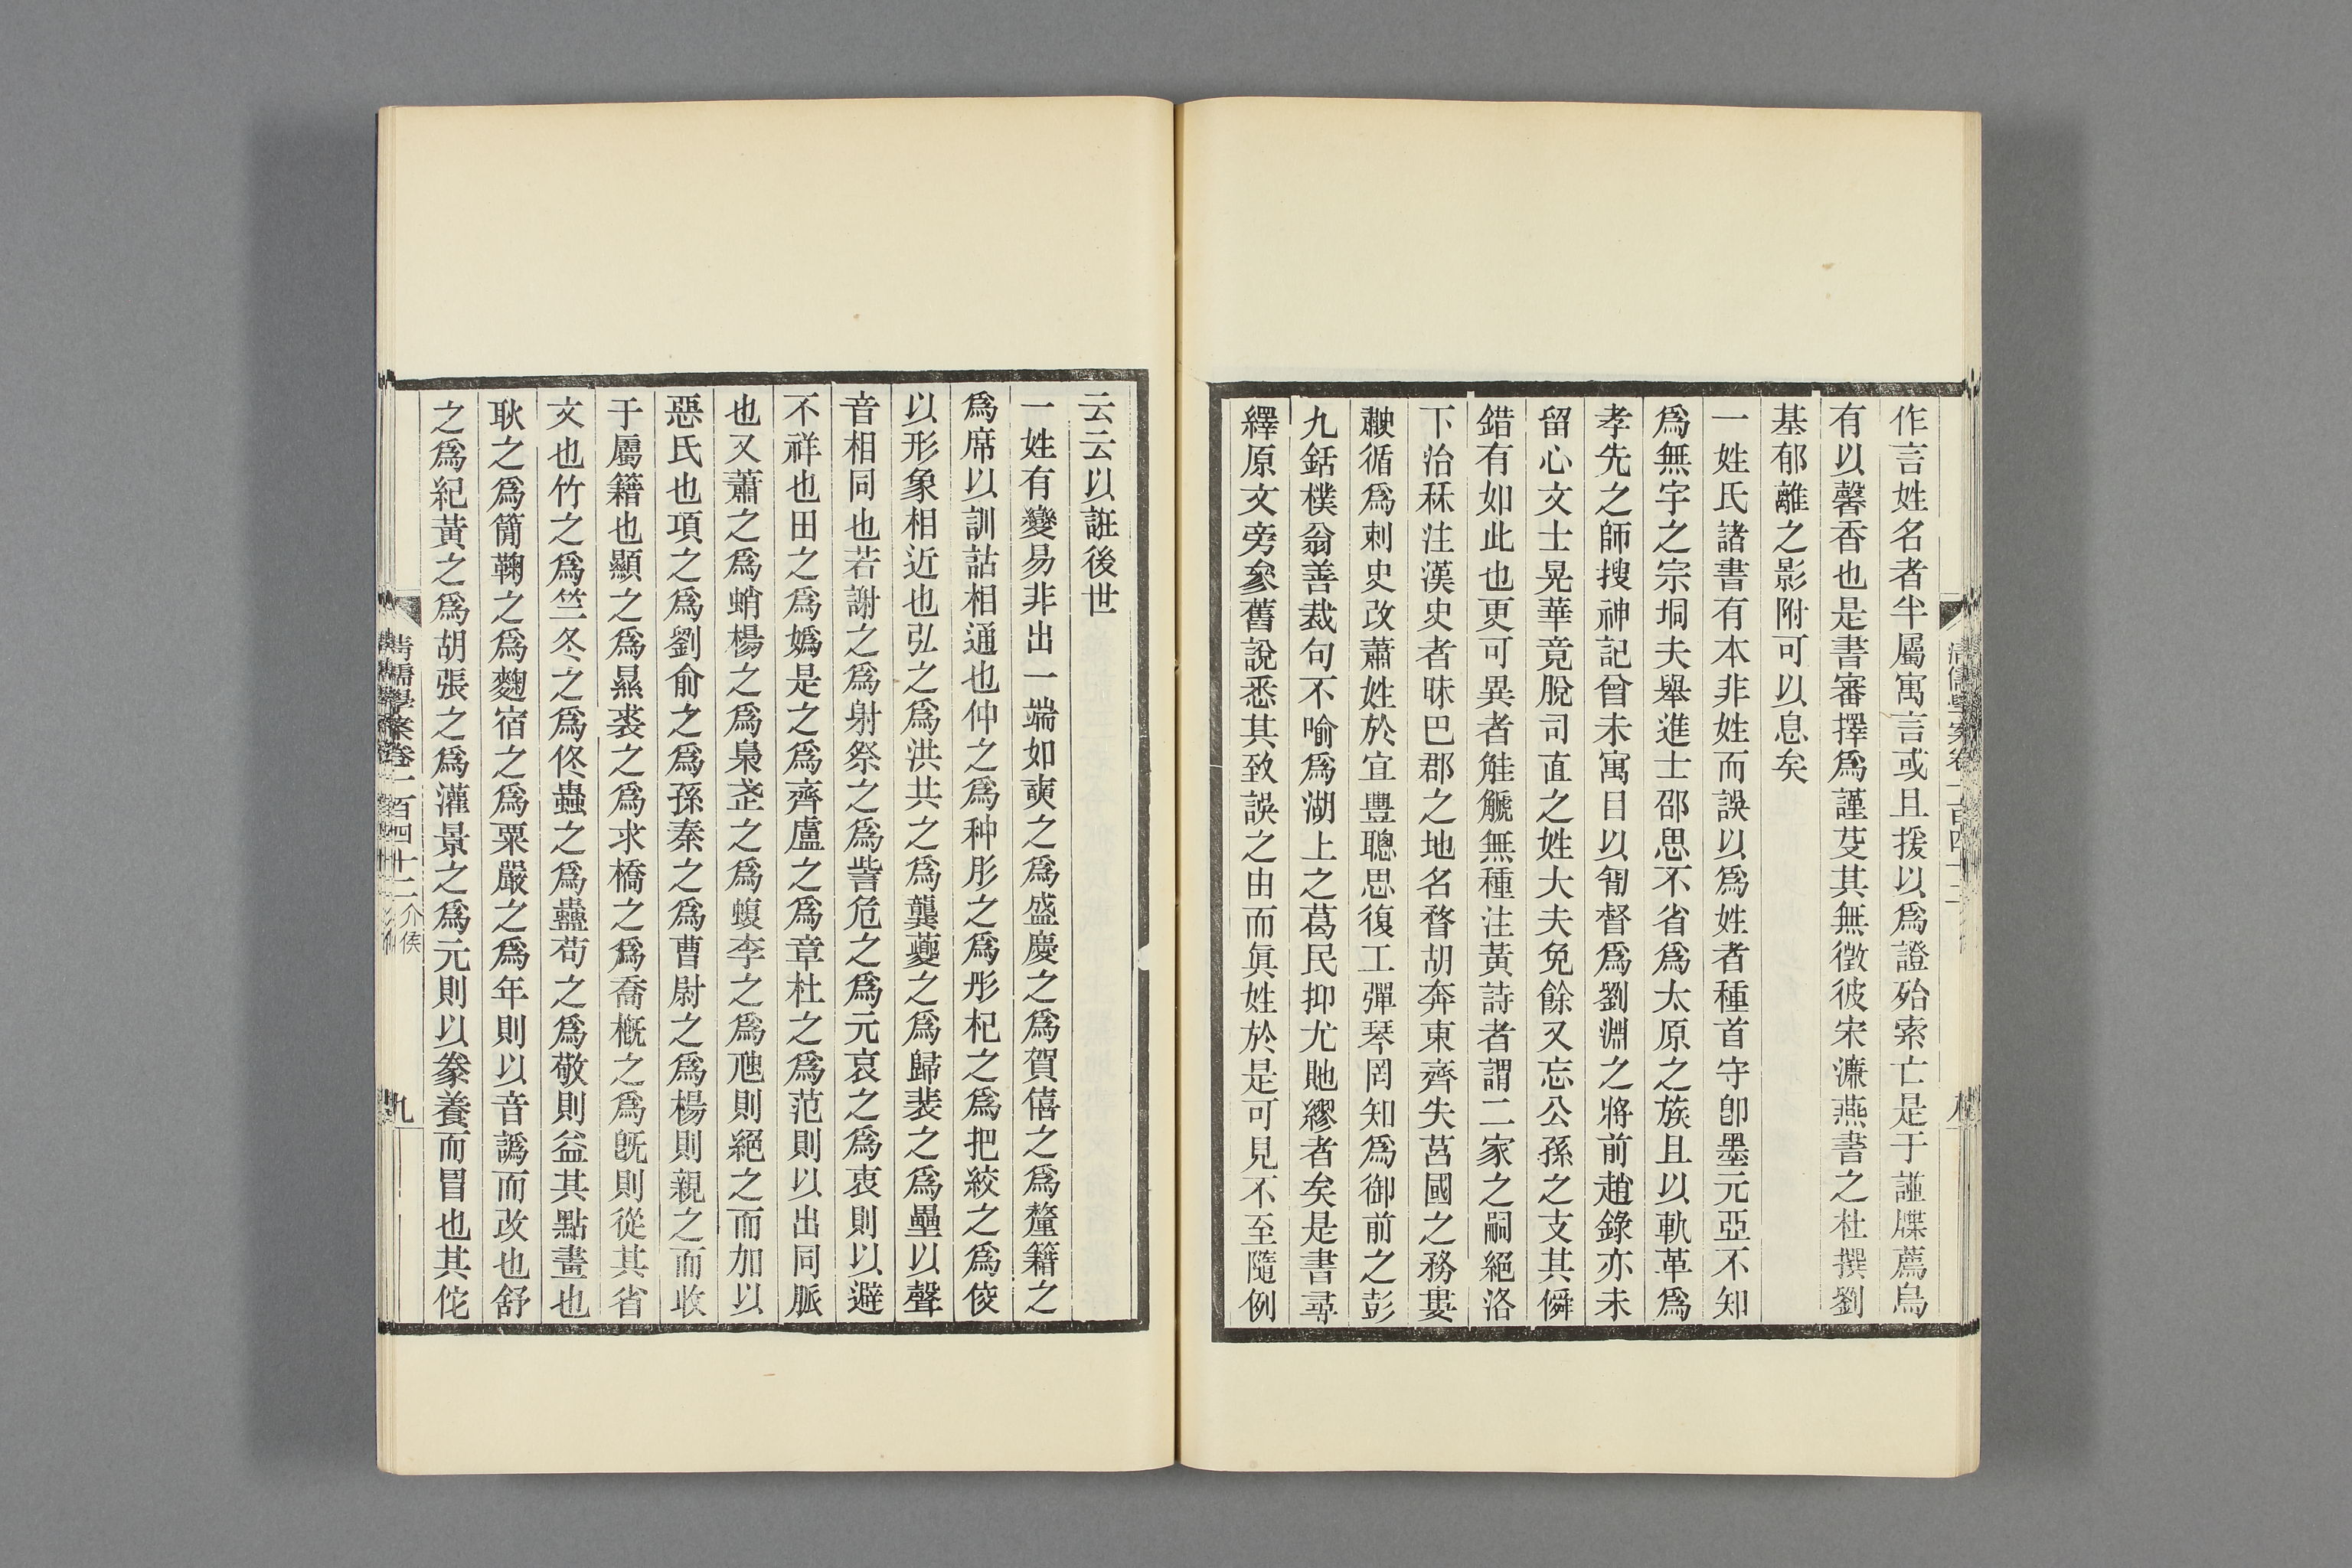 作言姓名者半屬寓言或且援以爲證殆索亡是于謹牒薦烏
有以馨香也是書審擇爲謹芟其無徵彼宋濂燕書之杜撰劉
基郁離之影附可以息矣
一姓氏諸書有本非姓而誤以爲姓者種首守卽墨元亞不知
爲無宇之宗垌夫舉進士邵思不省爲太原之族且以軌革爲
孝先之師搜神記曾未寓目以胷督爲劉淵之將前趙錄亦未
留心文士晃華竟脫司直之姓大夫免餘又忘公孫之支其僢
錯有如此也更可異者觟䚦無種注黃詩者謂二家之嗣絕洛
下治秝注漢史者昧巴郡之地名瞀胡奔東齊失莒國之務婁
歑循爲刺史改蕭姓於宜豐聰思復工彈琴罔知爲御前之彭
九銛樸翁善裁句不喻爲湖上之葛民抑尤貤繆者矣是書尋
繹原文旁參舊說悉其致誤之由而眞姓於是可見不至隨例
清儒學案卷一百四十二
云云以誑後世
一姓有變易非出一端如奭之爲盛慶之爲賀僖之爲釐籍之
爲席以訓詁相通也仲之爲种肜之爲彤杞之爲把絞之爲佼
以形象相近也弘之爲洪共之爲龔夔之爲歸裴之爲壘以聲
音相同也若謝之爲射祭之爲訾危之爲元哀之爲衷則以避
不祥也田之爲嬀是之爲齊盧之爲章杜之爲范則以出同脈
也又蕭之爲蛸楊之爲梟㐌之爲蝮李之爲虺則絕之而加以
惡氏也項之爲劉俞之爲孫秦之爲曹尉之爲楊則親之而收
于屬籍也顯之爲㬎裘之爲求橋之爲喬槪之爲旣則從其省
文也竹之爲竺冬之爲佟蟲之爲蠱苟之爲敬則益其點畫也
耿之爲簡鞠之爲麴宿之爲粟嚴之爲年則以音譌而改也舒
之爲紀黃之爲胡張之爲灌景之爲元則以豢養而冒也其佗
清儒學案卷一百四十二 介侯
九